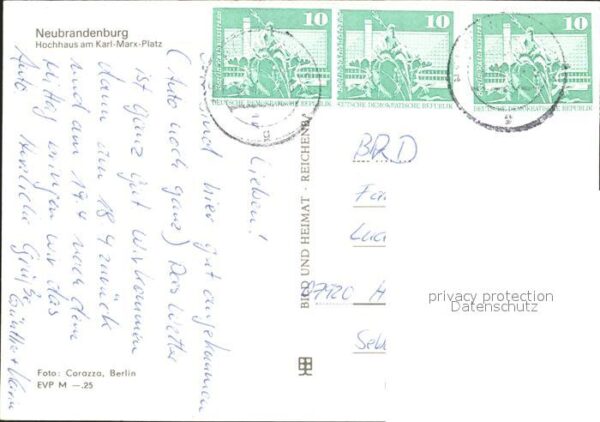 Neubrandenburg
Hochhaus am Karl-Marx-Platz
10
DEUTSCHE DEMOKRATISCHE REPUBLIK
10
DEUTSCHE DEMOKRATISCHE REPUBLIK
10
DEUTSCHE DEMOKRATISCHE REPUBLIK
Lieben!
sind hier gut angekommen
(Auto noch ganz) Das Wetter
ist ganz gut. Wir kommen
dann am 18.4 zurück
und am 19.4 nach dem
Mittag bringen wir das
Auto Herzliche Grüße
Günther +
BILD UND HEIMAT · REICHENB
BRD
Luc
A
privacy protection
Datenschutz
Foto: Corazza, Berlin
EVP M —.25